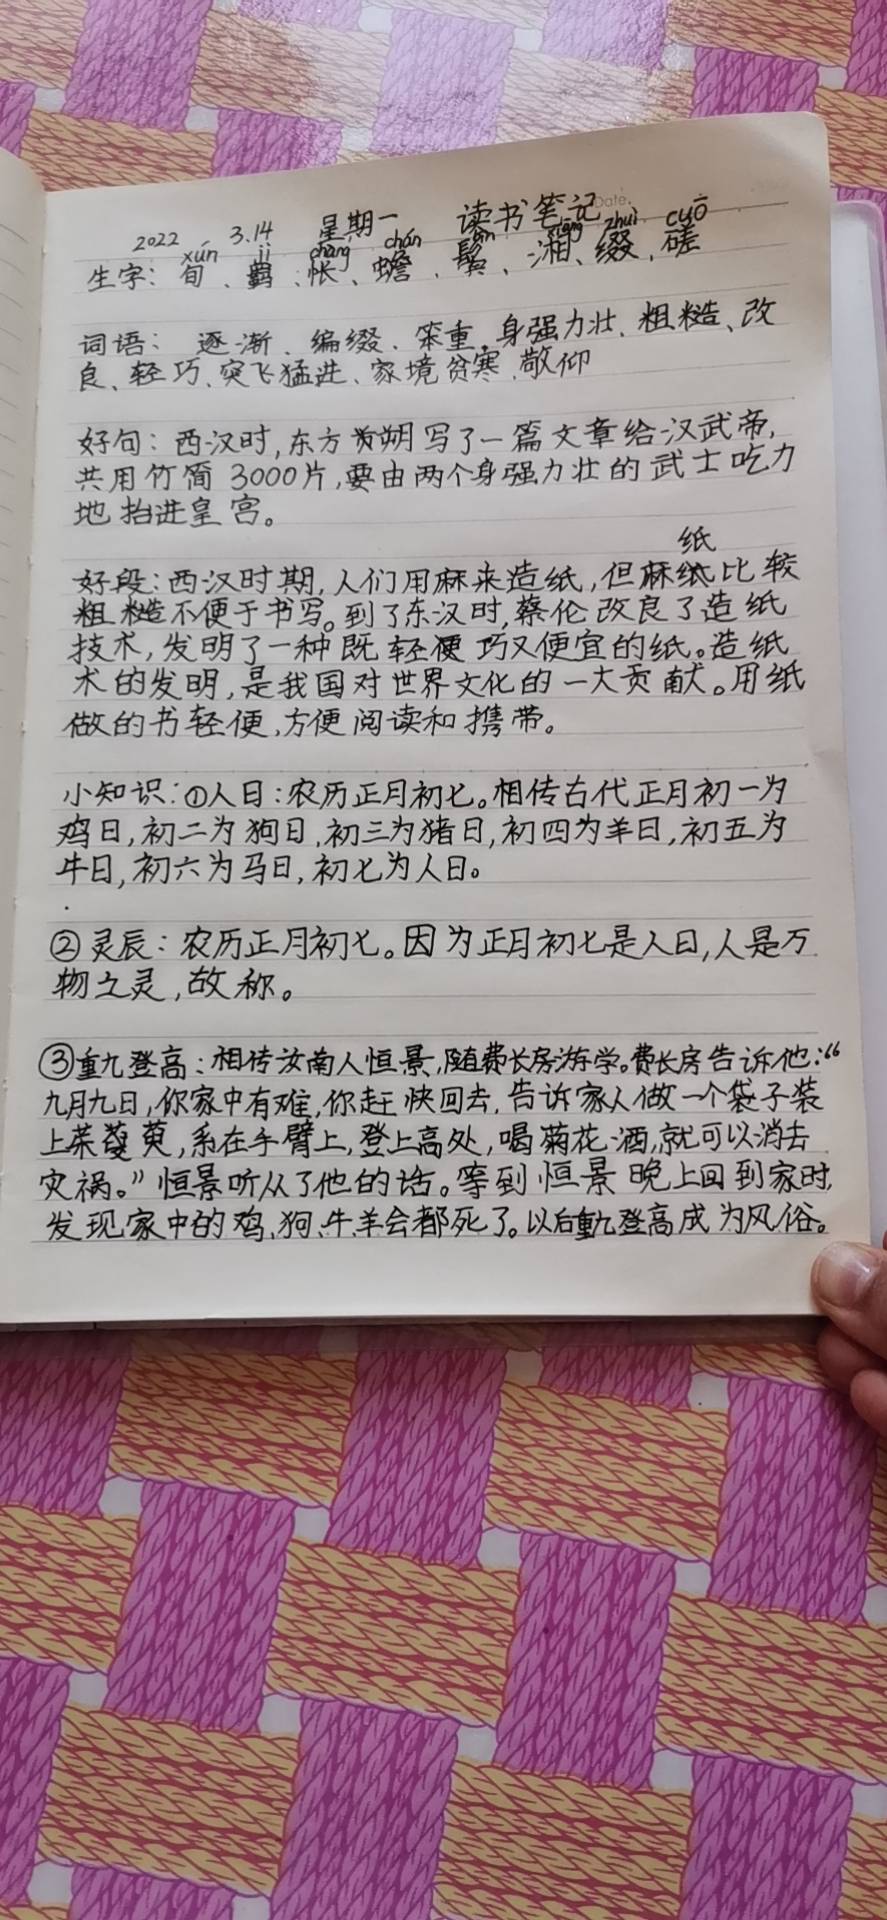 2022 3.14 星期一 读书笔记 Date.
xún jī chàng chán bìn xiāng zhuì cuō
生字：旬、羁、怅、蟾、鬓、湘、缀、磋
词语：逐渐、编缀、笨重、身强力壮、粗糙、改
良、轻巧、突飞猛进、家境贫寒、敬仰
好句：西汉时,东方朔写了一篇文章给汉武帝,
共用竹简3000片,要由两个身强力壮的武士吃力
地抬进皇宫。
纸
好段：西汉时期,人们用麻来造纸,但麻纸比较
粗糙不便于书写。到了东汉时,蔡伦改良了造纸
技术,发明了一种既轻巧又便宜的纸。造纸
术的发明,是我国对世界文化的一大贡献。用纸
做的书轻便,方便阅读和携带。
小知识:①人日:农历正月初七。相传古代正月初一为
鸡日,初二为狗日,初三为猪日,初四为羊日,初五为
牛日,初六为马日,初七为人日。
②灵辰:农历正月初七。因为正月初七是人日,人是万
物之灵,故称。
③重九登高:相传汝南人恒景,随费长房游学。费长房告诉他:“
九月九日,你家中有难,你赶快回去,告诉家人做一个袋子装
上茱萸,系在手臂上,登上高处,喝菊花酒,就可以消去
灾祸。”恒景听从了他的话。等到恒景晚上回到家时,
发现家中的鸡、狗、牛、羊会都死了。以后重九登高成为风俗。